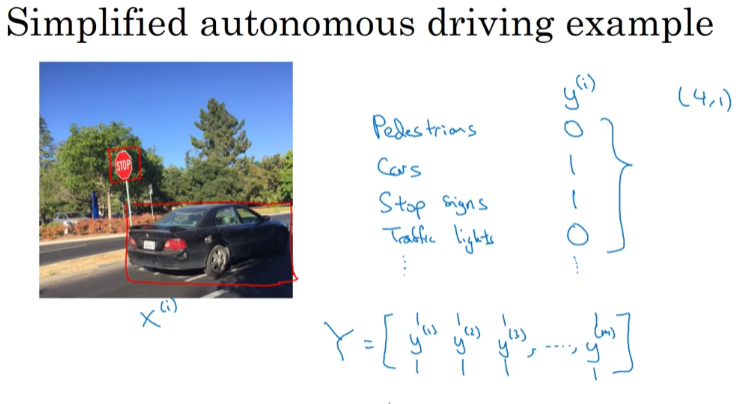 Simplified autonomous driving example
STOP
y^(i) (4,1)
Pedestrians 0
Cars 1
Stop signs 1
Traffic lights 0
⋮ ⋮
x^(i)
Y = [ y^(1) y^(2) y^(3), ...., y^(m) ]